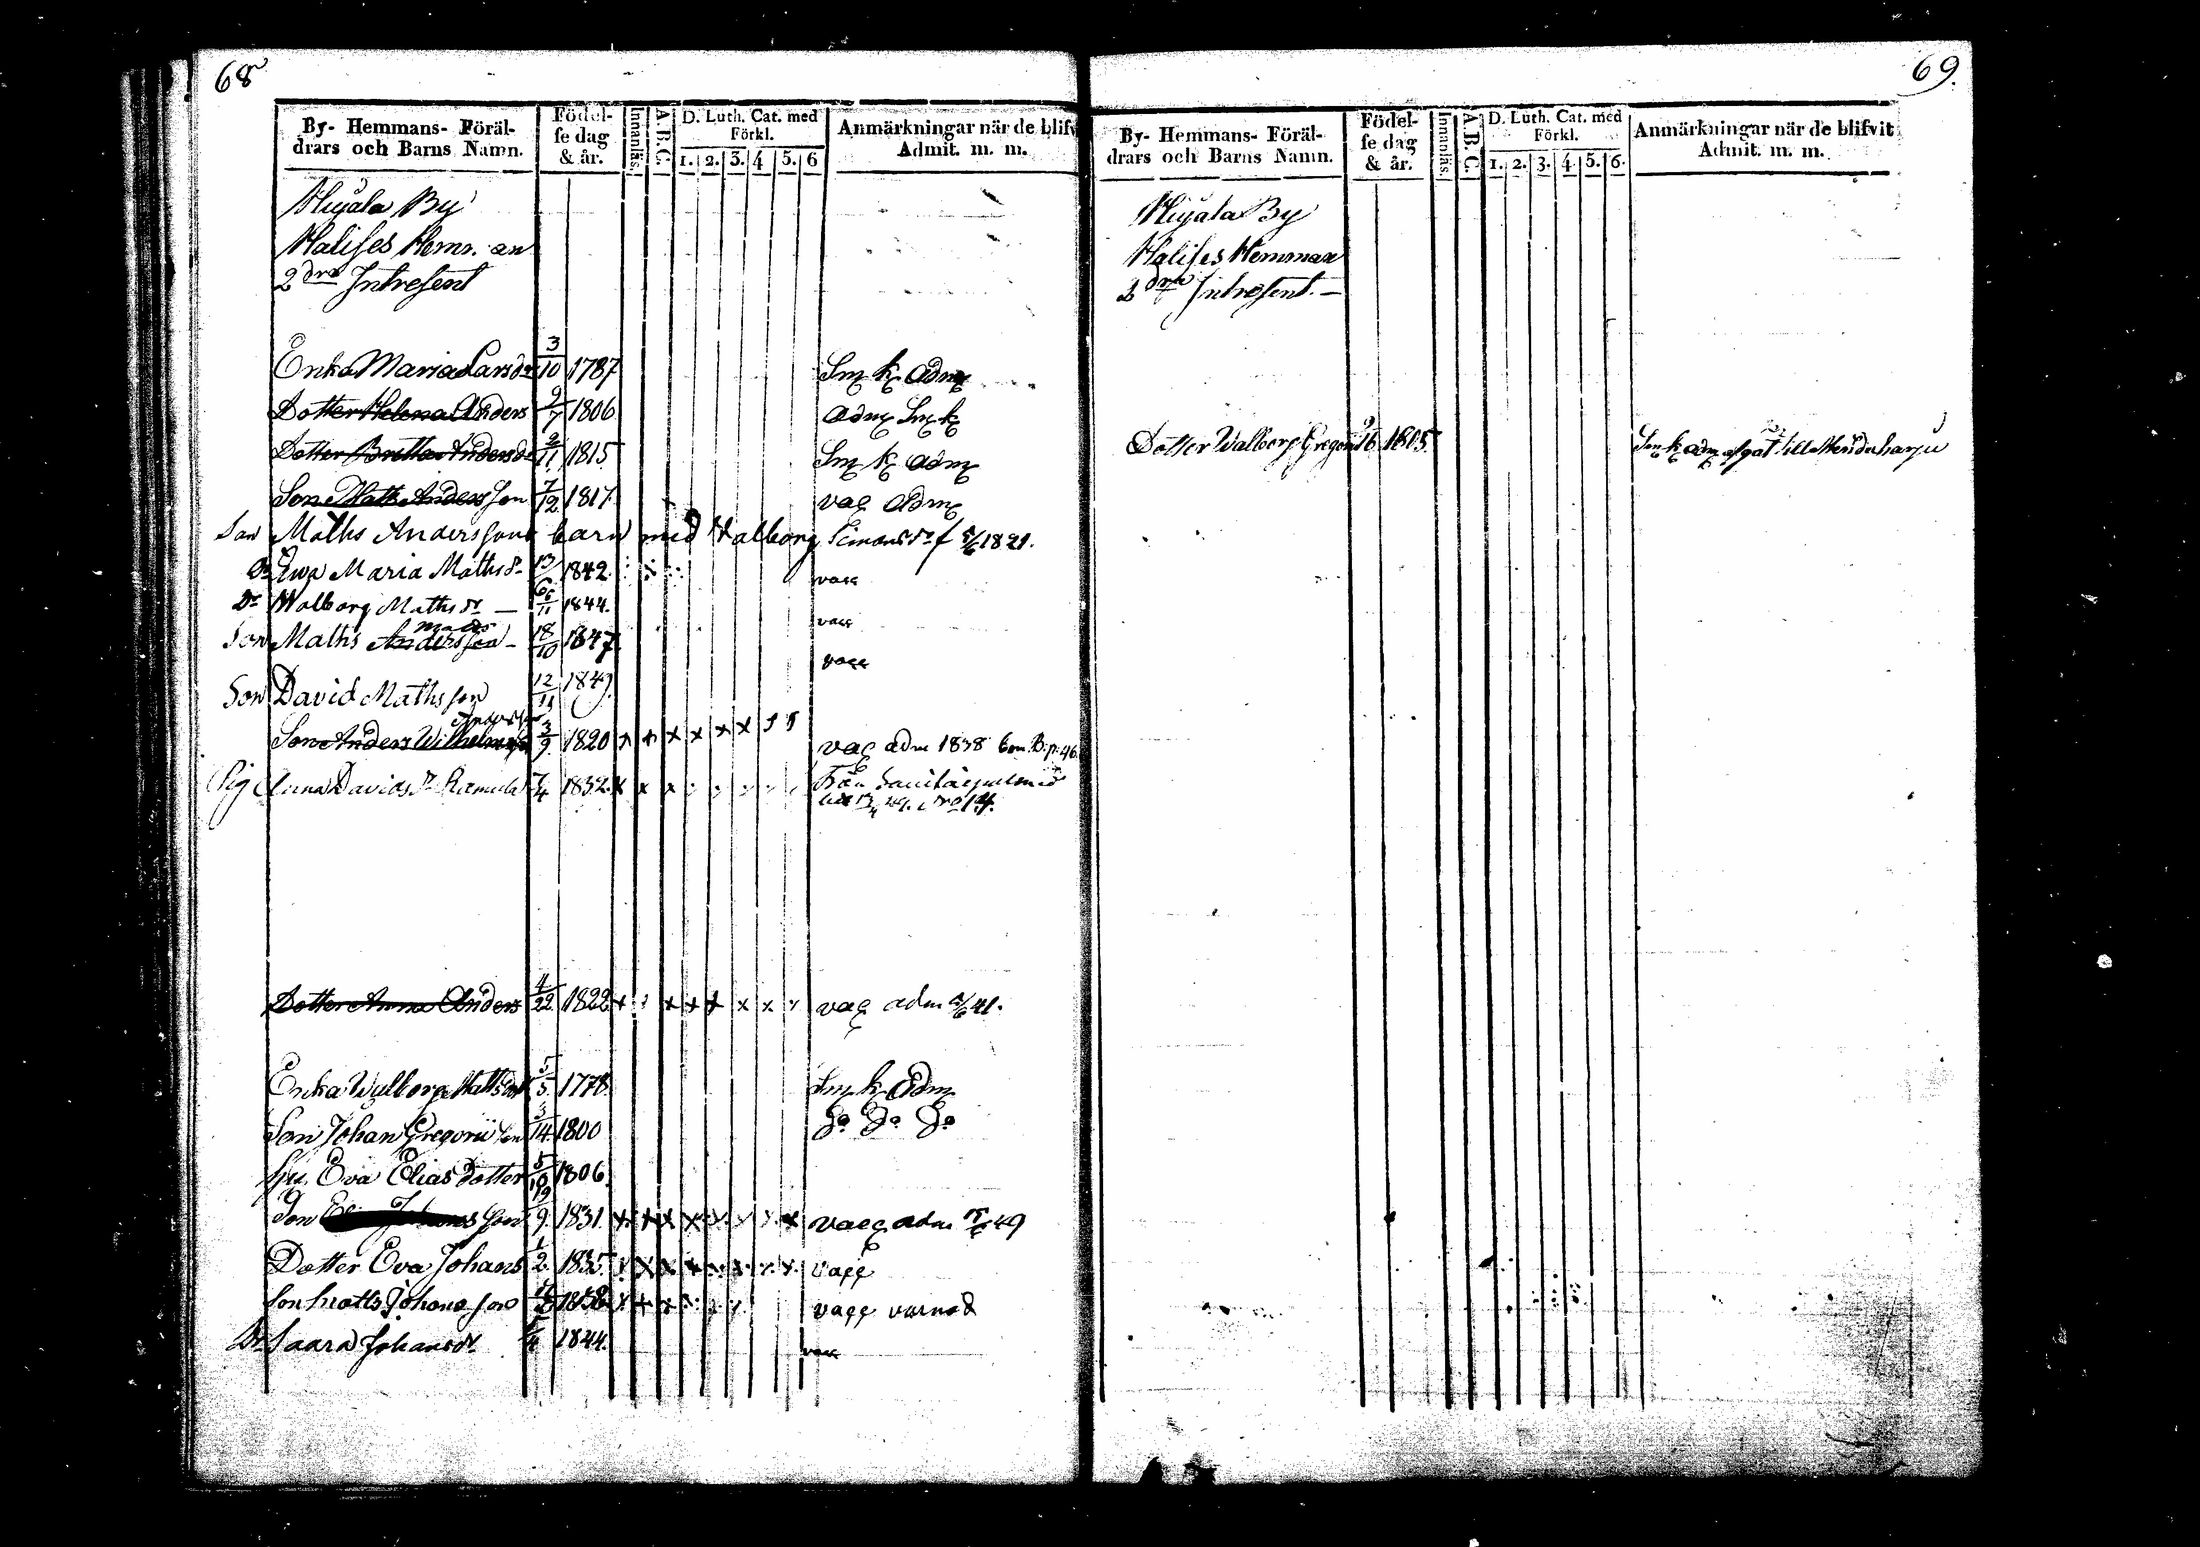 68
By- Hemmans- Föräl-
drars och Barns Namn.
Födel-
se dag
& år.
Innanläs.
A. B. C.
D. Luth. Cat. med
Förkl.
1. 2. 3. 4 5. 6
Anmärkningar när de blifv
Admit. m. m.
By
Halises Hemr. an
2dra Intresent
Enka Maria Larsdr 3/10 1787 Sm k adm
Dotter Helena Anders 9/7 1806 adm Sm k
Dotter Andersdr 2/11 1815 Sm k adm
Son Matts Andersson 7/12 1817 vac adm
Son Maths Anderssons barn med Walborg Simonsdr f 5/6 1821.
Dr Ewa Maria Mathsdr 13/ 1842 vacc
Dr Walborg Mathsdr — 6/11 1844. vacc
Son Maths Andersson Maths 18/10 1847 vacc
Son David Mathsson 12/11 1849.
Son Anders Wilhelm Andersson 3/9. 1820 x x x x x x vac adm 1838
Pig Anna Davidsdr 7/4 1832. x x x
Från
Dotter Anna Anders 4/22 1822 x x x x x x x vac adm 41.
Enka Walborg Mattsdr 5/5. 1778. Sm k Adm
Son Johan Gregorii son 3/14. 1800 Do Do Do
Hu. Eva Elias Dotter 5/10 1806.
Son Johansson 19/9. 1831. x x x x x x x x vacc adm 49
Dotter Eva Johans 1/2. 1835. x x x x x x x x vacc
Son Matts Johansson 1838 x x x vacc
Dr Saara Johansdr 1844. vacc
69.
By- Hemmans- Föräl-
drars och Barns Namn.
Födel-
se dag
& år.
Innanläs.
A. B. C.
D. Luth. Cat. med
Förkl.
1. 2. 3. 4. 5. 6.
Anmärkningar när de blifvit
Admit. m. m.
By
Halises Hemman
2dra Intresent. —
Dotter Walborg Gregorii 16 1805. Sm k adm afgåt till